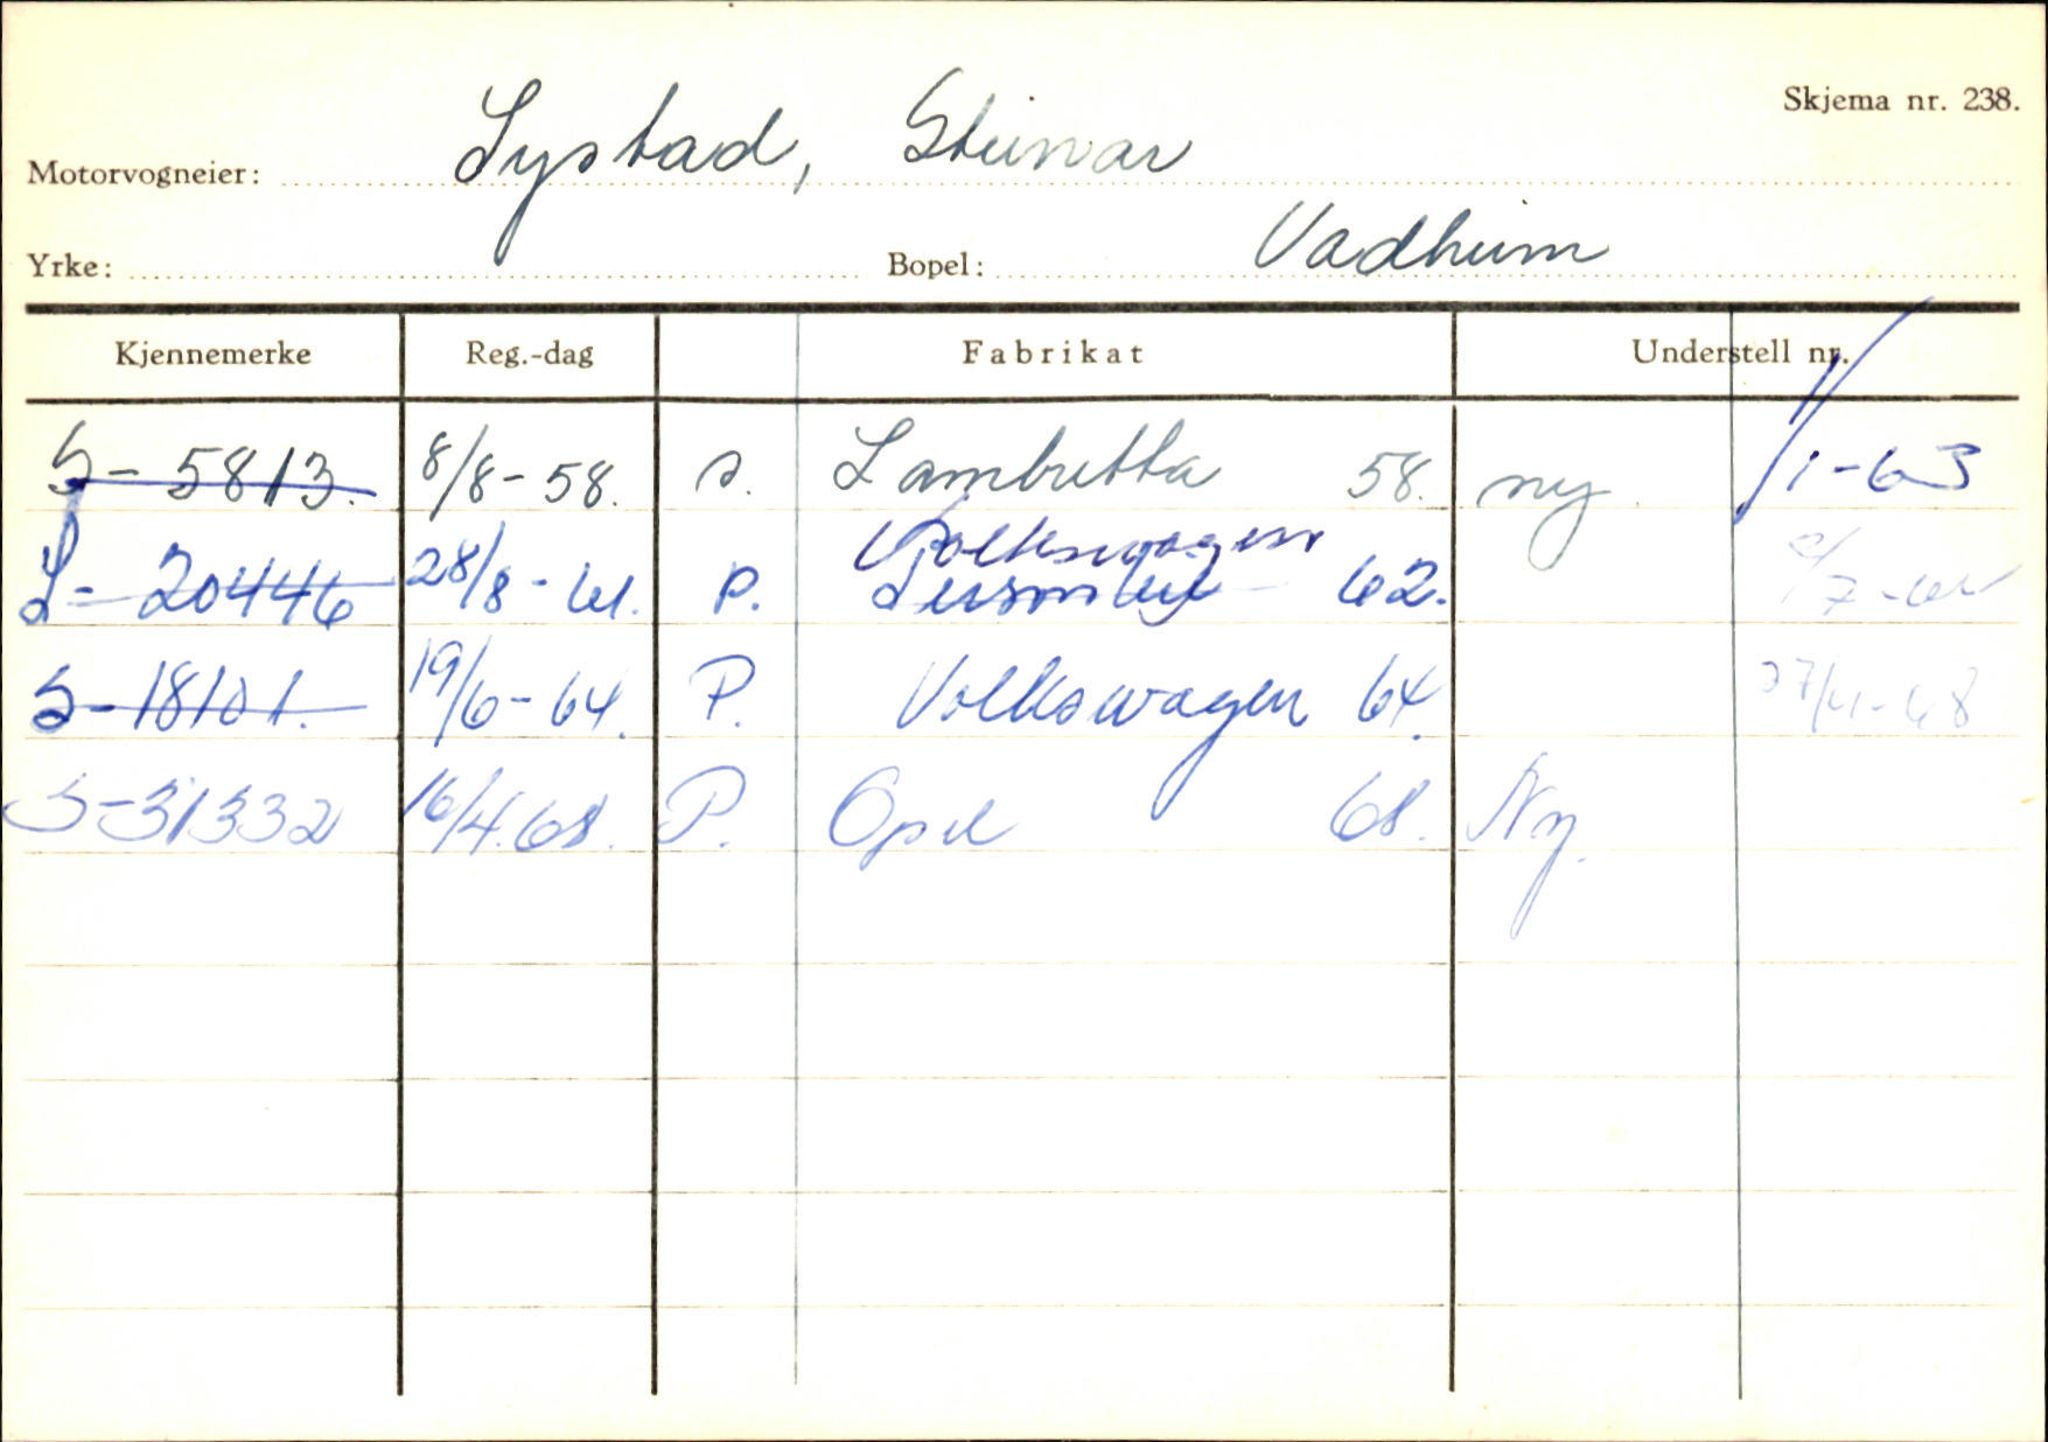 Skjema nr. 238.
Motorvogneier: Systad, Steinar
Yrke: Bopel: Vadheim
Kjennemerke Reg.-dag Fabrikat Understell nr.
S-5813. 8/8-58. s. Lambretta 58. ny 1-63
Volkswagen
L-20446 28/8-61. p. 62.
S-18101. 19/6-64. P. Volkswagen 64. 27/4-68
S-31332 16/4.68. P. Opel 68. Ny.